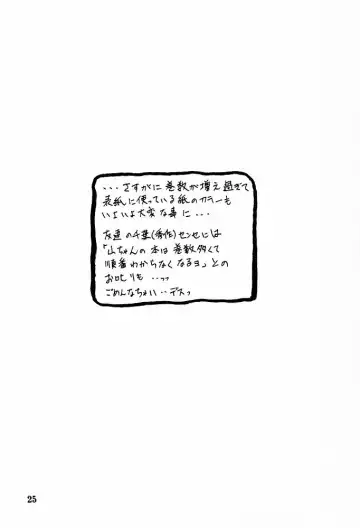 ...さすがに巻数が増え過ぎて
表紙に使っている紙のカラーも
いよいよ大変な事に...
友達の千葉(秀作)センセには
「山ちゃんの本は巻数多くて
順番わからなくなるヨ」との
お叱りも...
ごめんなちぃ...デスっ
25